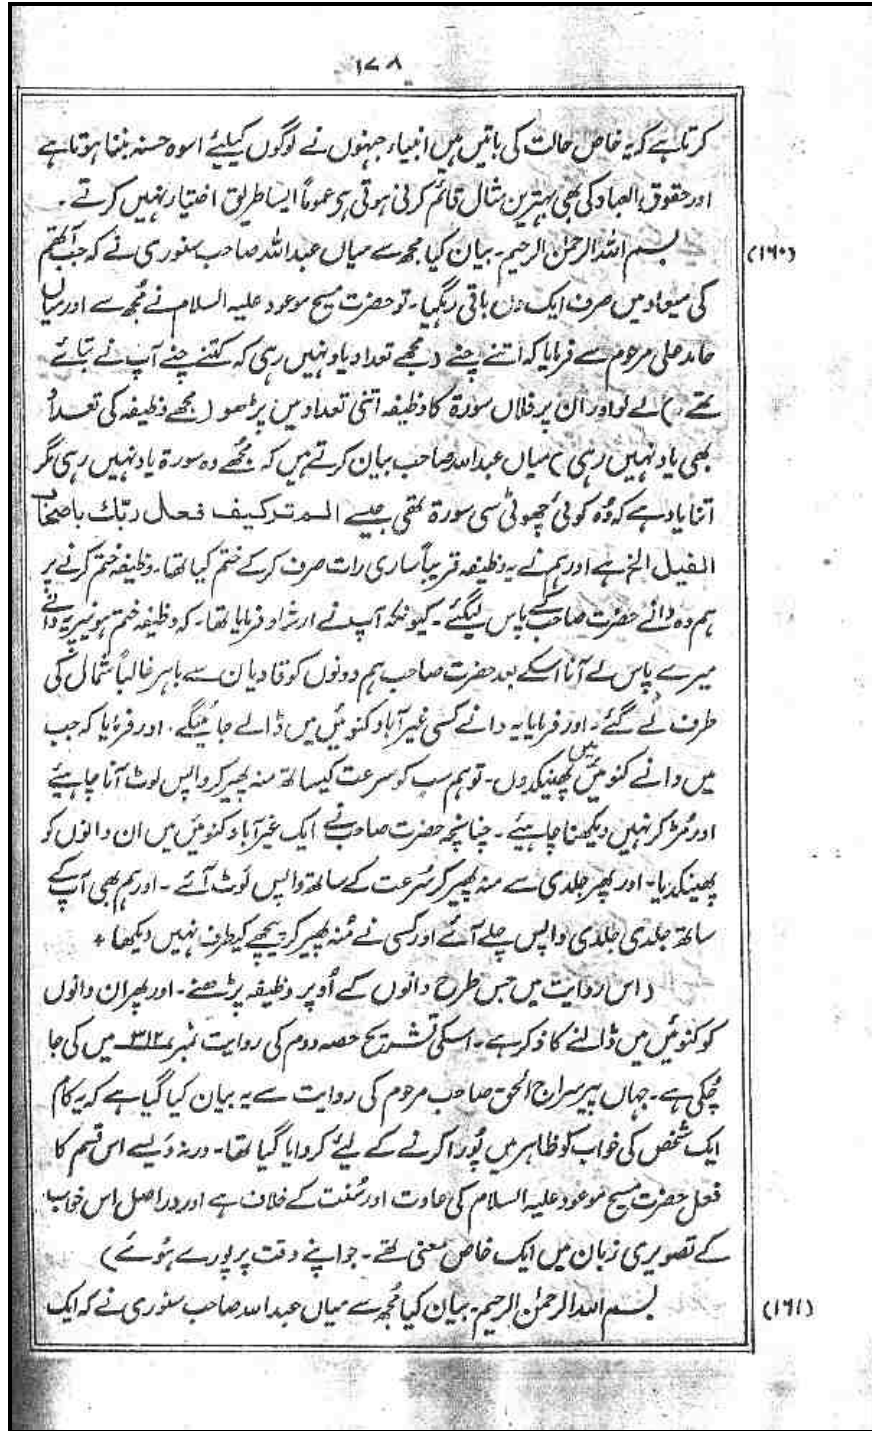 ۱۷۸
کرتا ہے کہ یہ خاص حالت کی باتیں ہیں انبیاء جنہوں نے لوگوں کیلئے اسوہ حسنہ بننا ہوتا ہے
اور حقوق العباد کی بھی بہترین مثال قائم کرنی ہوتی ہے عموماً ایسا طریق اختیار نہیں کرتے۔
(۱۶۰) بسم اللہ الرحمٰن الرحیم۔ بیان کیا مجھ سے میاں عبداللہ صاحب سنوری نے کہ جب آتھم
کی میعاد میں صرف ایک دن باقی رہگیا۔ تو حضرت مسیح موعود علیہ السلام نے مُجھ سے اور میاں
حامد علی مرحوم سے فرمایا کہ اتنے چنے (مجھے تعداد یاد نہیں رہی کہ کتنے چنے آپ نے بتائے
تھے) لے لو اور ان پر فلاں سورۃ کا وظیفہ اتنی تعداد میں پڑھو (مجھے وظیفہ کی تعداد
بھی یاد نہیں رہی) میاں عبداللہ صاحب بیان کرتے ہیں کہ مجُھے وہ سورۃ یاد نہیں رہی مگر
اتنا یاد ہے کہ وُہ کوئی چھوٹی سی سورۃ تھی جیسے الم ترکیف فعل ربّک باصحٰب
الفیل الخ ہے اور ہم نے یہ وظیفہ قریباً ساری رات صرف کرکے ختم کیا تھا۔ وظیفہ ختم کرنے پر
ہم وہ دانے حضرت صاحب کے پاس لیگئے۔ کیونکہ آپ نے ارشاد فرمایا تھا۔ کہ وظیفہ ختم ہونیپر یہ دانے
میرے پاس لے آنا اسکے بعد حضرت صاحب ہم دونوں کو قادیان سے باہر غالباً شمال کی
طرف لے گئے۔ اور فرمایا یہ دانے کسی غیر آباد کنوئیں میں ڈالے جائینگے۔ اور فرمایا کہ جب
میں دانے کنوئیں میں پھینکدوں۔ تو ہم سب کو سرعت کیساتھ منہ پھیر کر واپس لوٹ آنا چاہیئے
اور مُڑ کر نہیں دیکھنا چاہیئے۔ چنانچہ حضرت صاحب نے ایک غیر آباد کنوئیں میں ان دانوں کو
پھینکدیا۔ اور پھر جلدی سے منہ پھیر کر سُرعت کے ساتھ واپس لَوٹ آئے۔ اور ہم بھی آپ کے
ساتھ جلدی جلدی واپس چلے آئے اور کسی نے مُنہ پھیر کر پیچھے کیطرف نہیں دیکھا +
(اس روایت میں جس طرح دانوں کے اُوپر وظیفہ پڑھنے۔ اور پھر ان دانوں
کو کنوئیں میں ڈالنے کا ذکر ہے۔ اسکی تشریح حصہ دوم کی روایت نمبر ۳۱۲ میں کی جا
چُکی ہے۔ جہاں پیر سراج الحق صاحب مرحوم کی روایت سے یہ بیان کیا گیا ہے کہ یہ کام
ایک شخص کی خواب کو ظاہر میں پُورا کرنے کے لیئے کروایا گیا تھا۔ ورنہ ویسے اس قسم کا
فعل حضرت مسیح موعود علیہ السلام کی عادت اور سُنت کے خلاف ہے اور دراصل اس خواب
کے تصویری زبان میں ایک خاص معنی تھے۔ جو اپنے وقت پر پورے ہُوئے)
(۱۶۱) بسم اللہ الرحمٰن الرحیم۔ بیان کیا مُجھ سے میاں عبداللہ صاحب سنوری نے کہ ایک